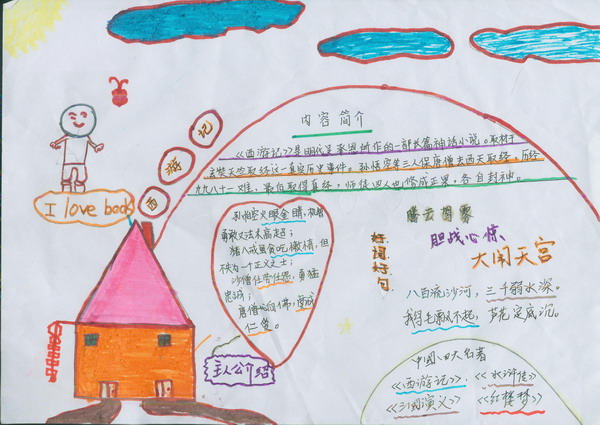 西
游
记
I love book
内容简介
《西游记》是明代吴承恩所作的一部长篇神话小说。取材于
玄奘天竺取经这一真实历史事件。孙悟空等三人保唐僧去西天取经,历经
九九八十一难,最后取得真经,师徒四人也修成正果,各自封神。
孙悟空火眼金睛,机智
勇敢又法术高超;
猪八戒虽贪吃懒惰,但
不失为一个正义之士;
沙僧任劳任怨,勇猛
忠诚;
唐僧一心向佛,
仁爱。
主人公介绍
好词好句
腾云驾雾
胆战心惊
大闹天宫
八百流沙河,三千弱水深。
鹅毛飘不起,芦花定底沉。
中国四大名著
《西游记》、《水浒传》
《三国演义》《红楼梦》